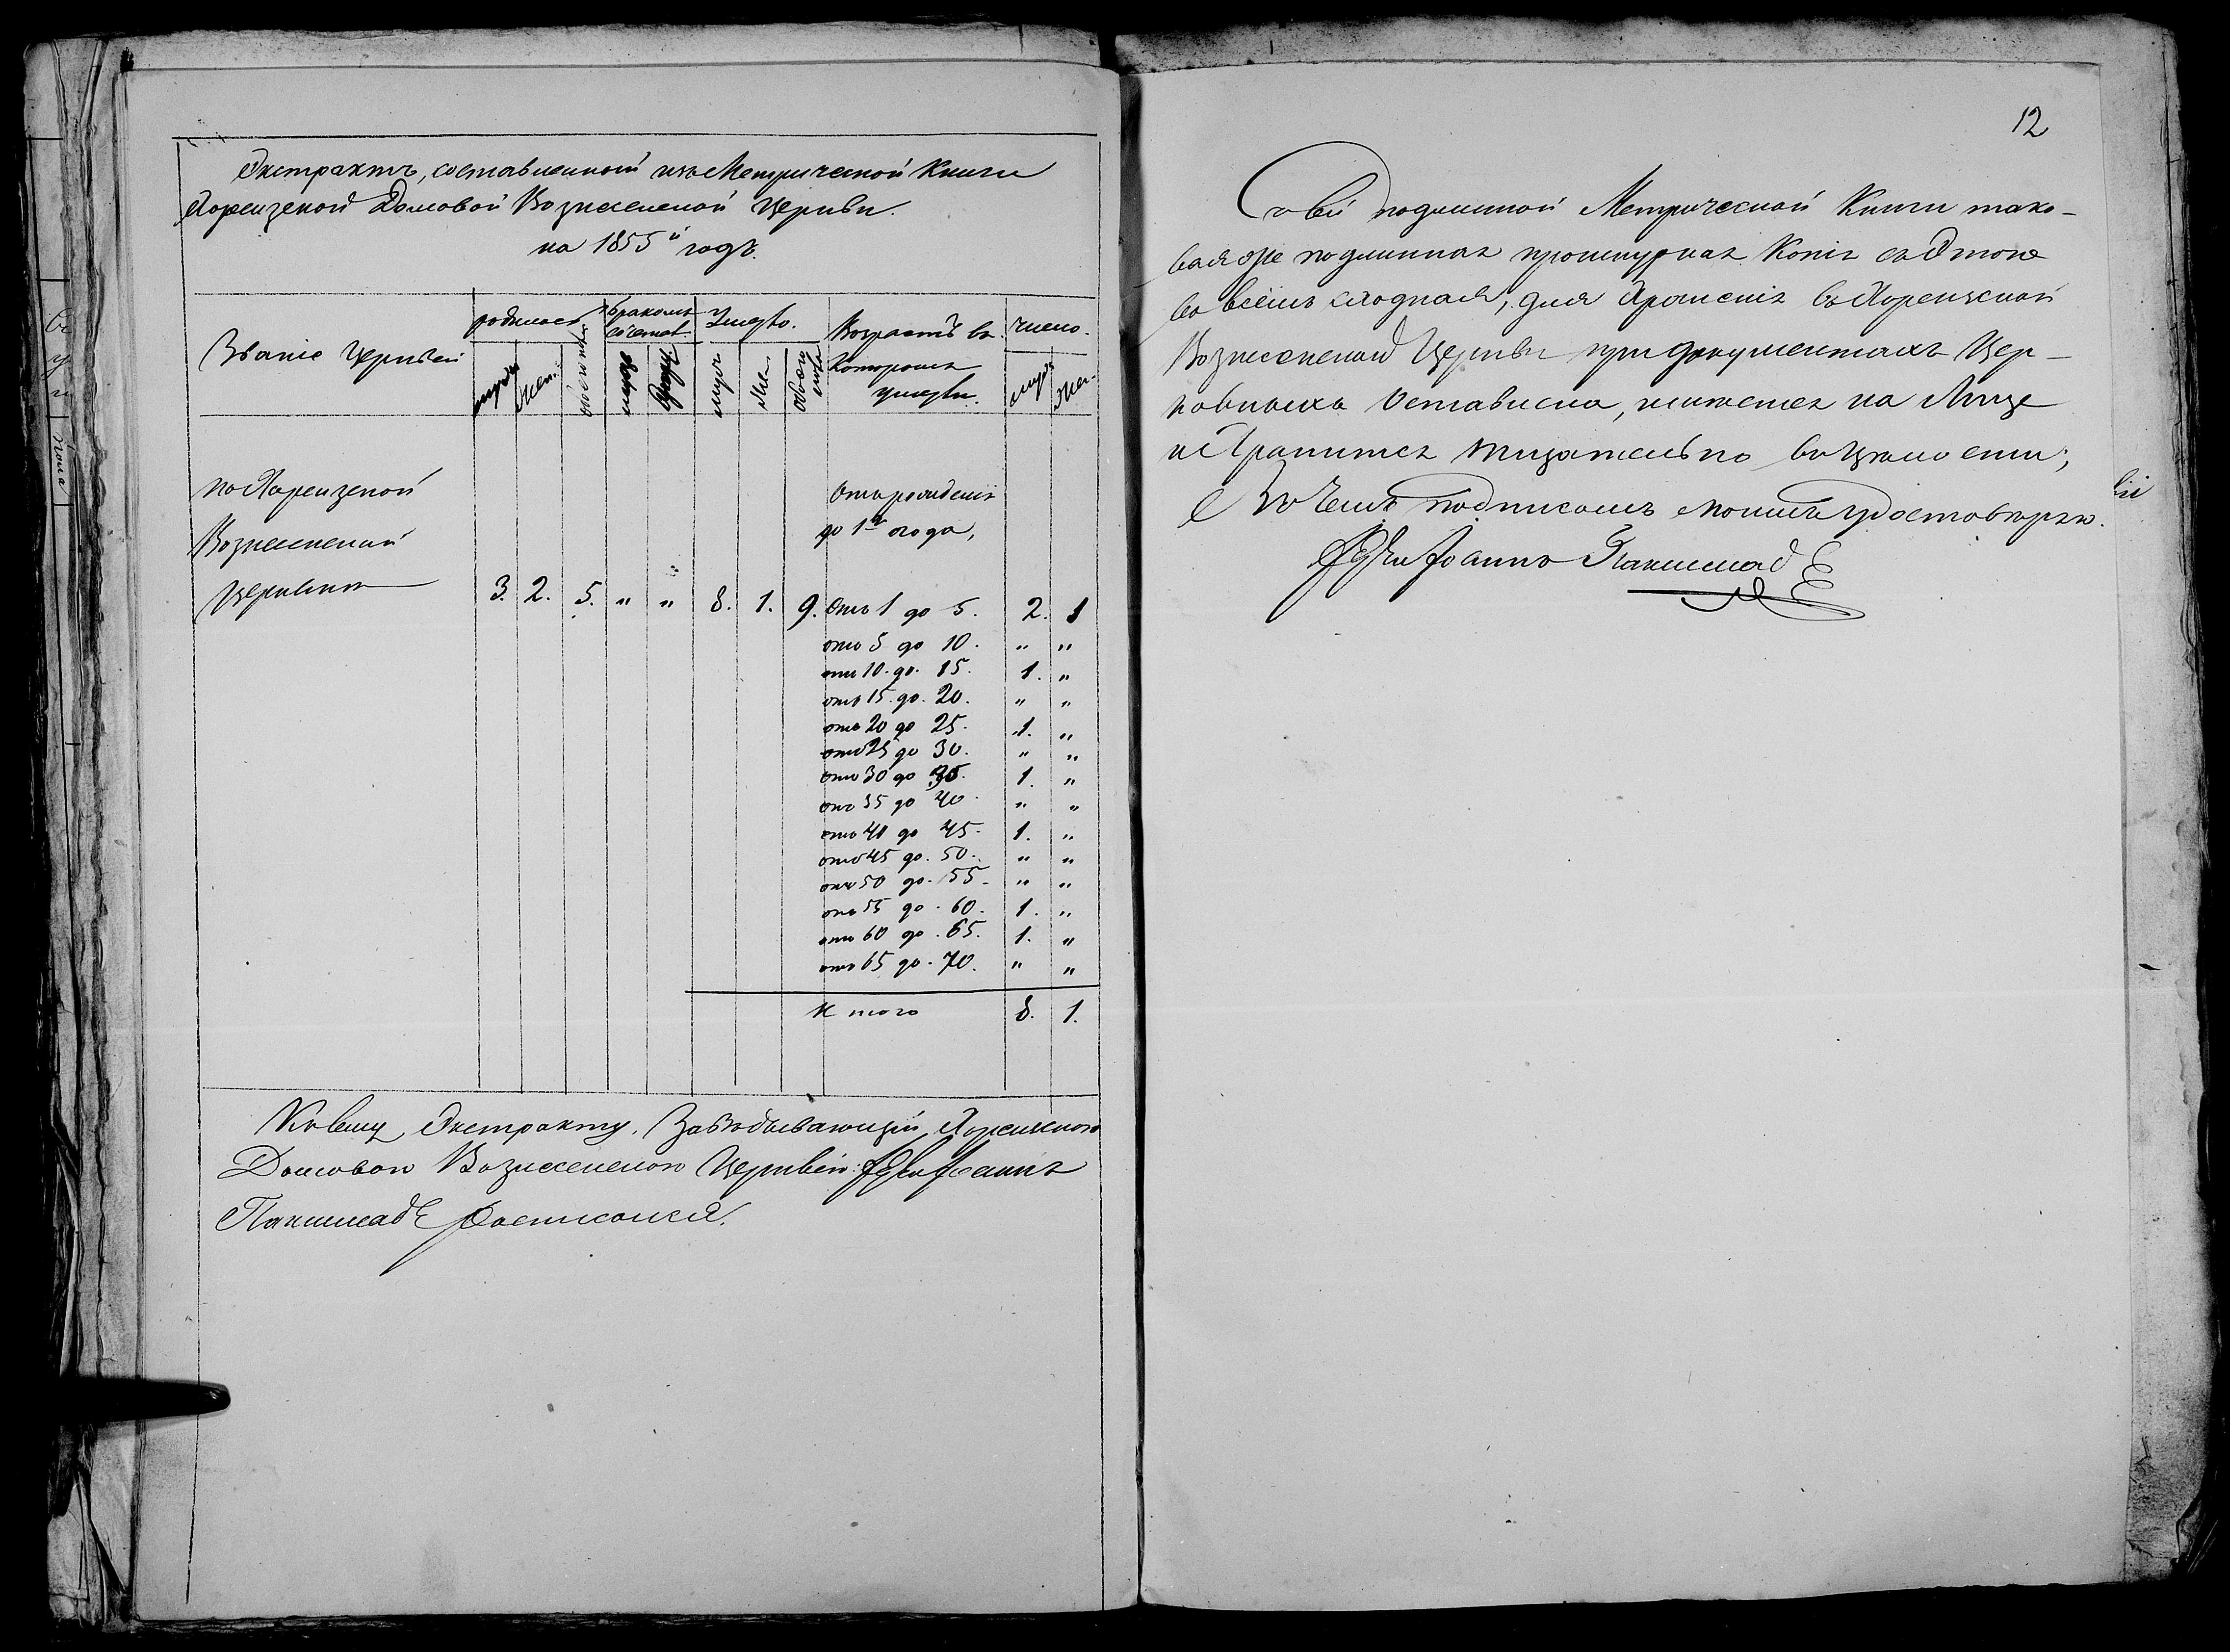 Экстрактъ, составленной изъ Метрической Книги
Лорензской Домовой Вознесенской Церкви.
на 1855й годъ.
Званіе Церквей
родилось
муж.
Жен.
обоего пола
бракомъ сочетал.
Умерло.
муж
Жен
обоего пола
Возрастъ въ которомъ умерли.
число.
муж
Жен.
по Лорензской
Вознесенской
Церкви
3. 2. 5. " " 8. 1. 9.
Отъ рожденія
до 1го года,
Отъ 1 до 5. 2. 1
отъ 5 до 10. " "
отъ 10. до. 15. 1. "
отъ 15. до. 20. " "
отъ 20 до 25. 1. "
отъ 25 до 30. " "
отъ 30 до 35. 1. "
отъ 35 до 40. " "
отъ 40 до 45. 1. "
отъ 45 до. 50. " "
отъ 50 до. 55. " "
отъ 55 до. 60. 1. "
отъ 60 до. 65. 1. "
отъ 65 до. 70. " "
И того 8. 1.
Къ сему Экстракту, Завѣдывающій Лорензскою
Домовою Вознесенскою Церквію: Іоаннъ
росписался.
12
Съ сей подлинной Метрической Книги тако-
вая же подлинная прошнурная Копія съ Этою
во всемъ сходная, для Храненія въ Лорензской
Вознесенской Церкви при документахъ Цер-
ковныхъ Оставлена, имеется на Лице
и Хранится тщательно въ целости;
Въ Чемъ подписомъ моимъ удостоверяю.
Іоаннъ